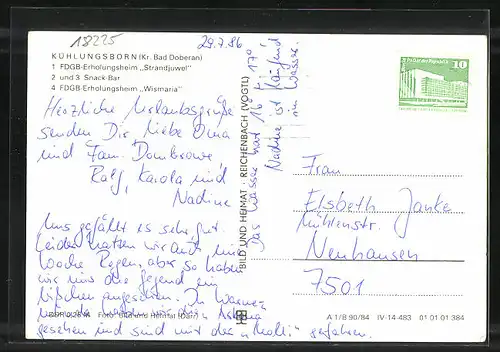 18225
29.7.86
KÜHLUNGSBORN (Kr. Bad Doberan)
1 FDGB-Erholungsheim „Strandjuwel"
2 und 3 Snack-Bar
4 FDGB-Erholungsheim „Wismaria"
Herzliche Urlaubsgrüße
senden Dir liebe Oma
und Fam. Dombrowe,
Ralf, Karola und
Nadine
Uns gefällt es sehr gut.
Leider hatten wir auch eine
Woche Regen, aber so haben
wir uns die Gegend ein
bißchen angesehen. In Warne-
münde
gesehen und sind mit der „Molli" gefahren.
Das Wasser hat 16°-17°
Nadine ist laufend
im Wasser.
BILD UND HEIMAT · REICHENBACH (VOGTL)
10
Frau
Elsbeth Janke
Mühlenstr.
Neuhausen
7501
Foto: Bild und Heimat
A 1/B 90/84 IV-14-483 01 01 01 384